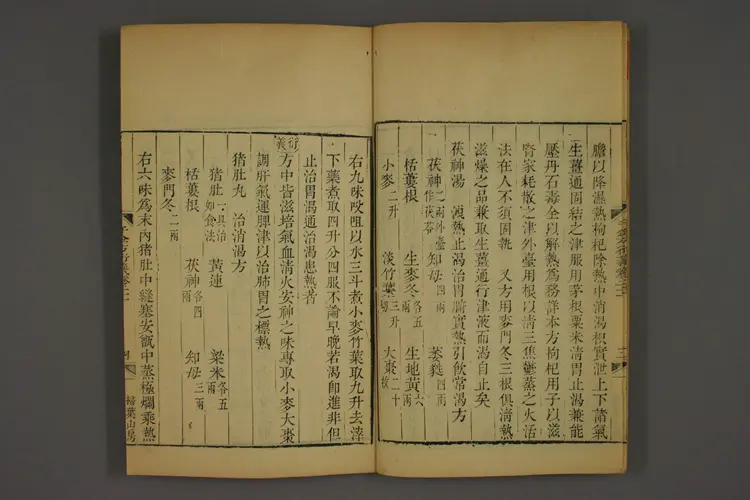 膽以降濕熱枸杞除熱中消渴根實泄上下諸氣
生薑通固結之津服用茅根粟米清胃止渴兼能
壓丹石毒全以解熱為務詳本方枸杞用子以滋
腎家耗散之津外臺用根以清三焦鬱蒸之火活
法在人不須固執 又方用麥門冬三根俱清熱
滋燥之品兼取生薑通行津液而渴自止矣
茯神湯 泄熱止渴治胃腑實熱引飲常渴方
茯神二兩外臺作茯苓 知母四兩 萎蕤四兩
栝蔞根 生麥冬各五兩 生地黃六兩
小麥二升 淡竹葉三升切 大棗二十枚
右九味㕮咀以水三斗煮小麥竹葉取九升去滓
下藥煮取四升分四服不論早晚若渴即進非但
止治胃渴通治渴患熱者
衍義
方中皆滋培氣血清火安神之味專取小麥大棗
調肝氣運脾津以治肺胃之標熱
豬肚丸 治消渴方
豬肚一具治如食法 黃連 粱米各五兩
栝蔞根 茯神各四兩 知母三兩
麥門冬二兩
右六味為末內豬肚中縫塞安甑中蒸極爛乘熱
掃葉山房